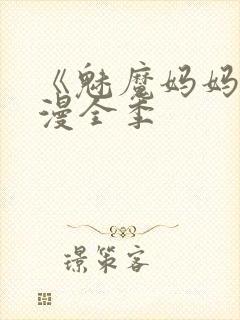 《魅魔妈妈
漫全季
璟策客